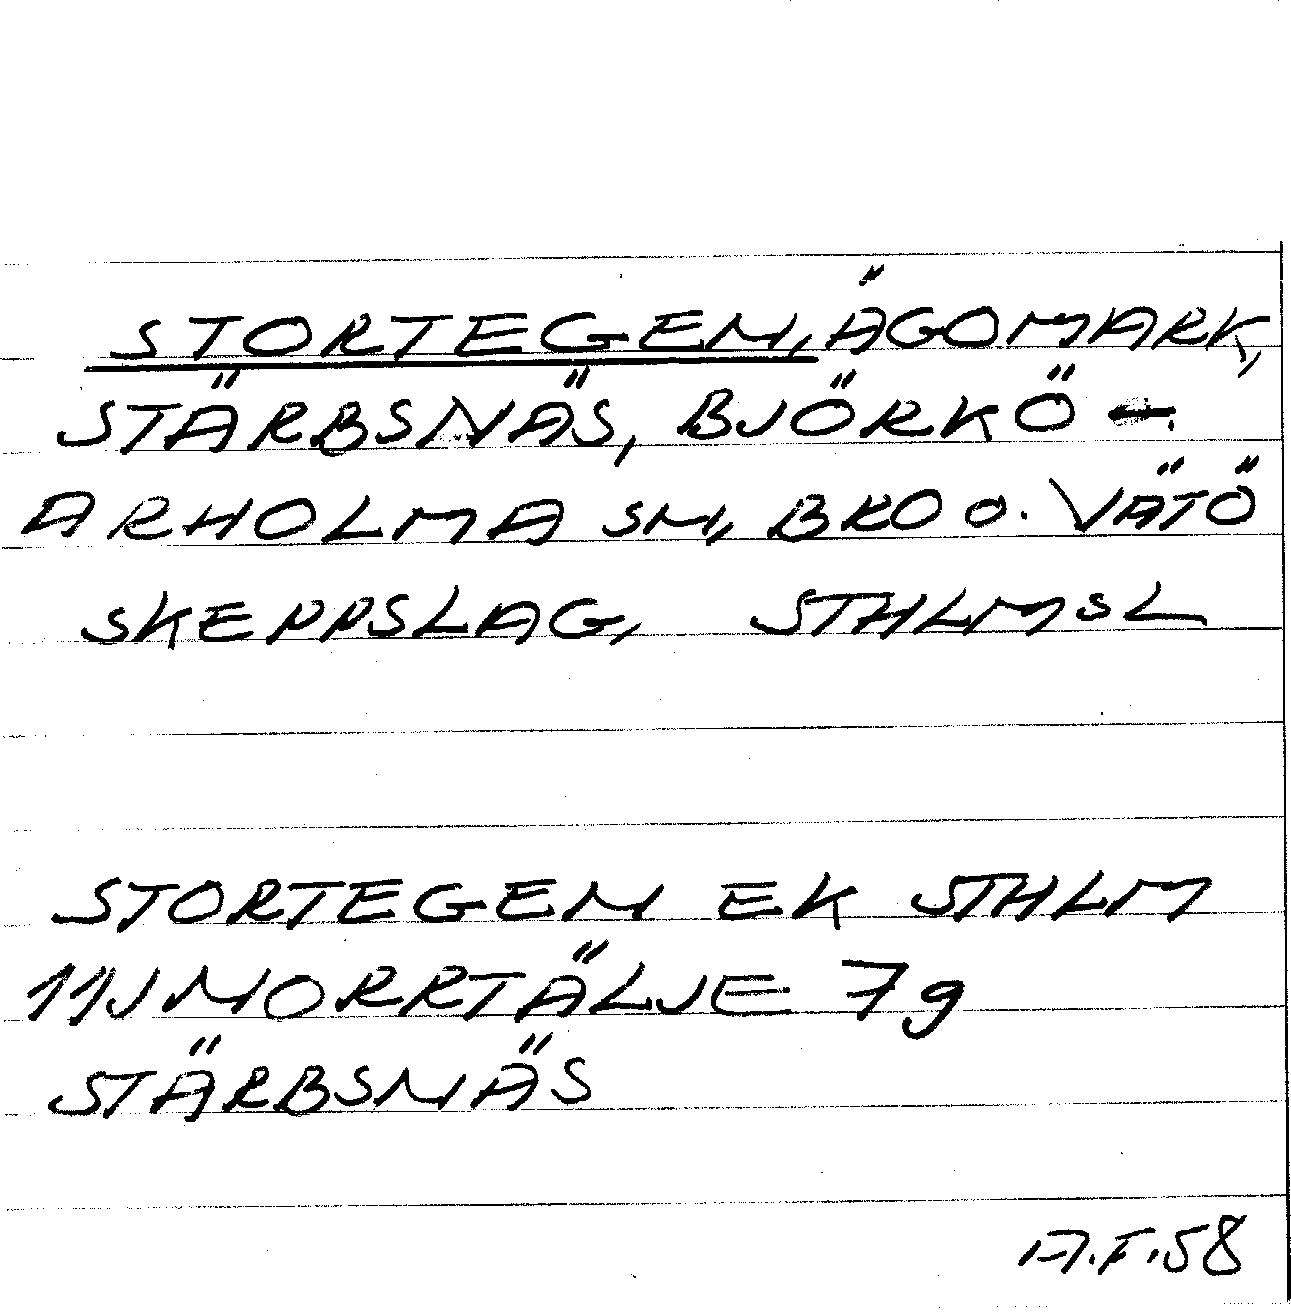 STORTEGEN, ÄGOMARK,
STÄRBSNÄS, BJÖRKÖ-
ARHOLMA SN, BRO O. VÄTÖ
SKEPPSLAG, STHLMSL
STORTEGEN EK STHLM
11J NORRTÄLJE 7g
STÄRBSNÄS
A.F.58